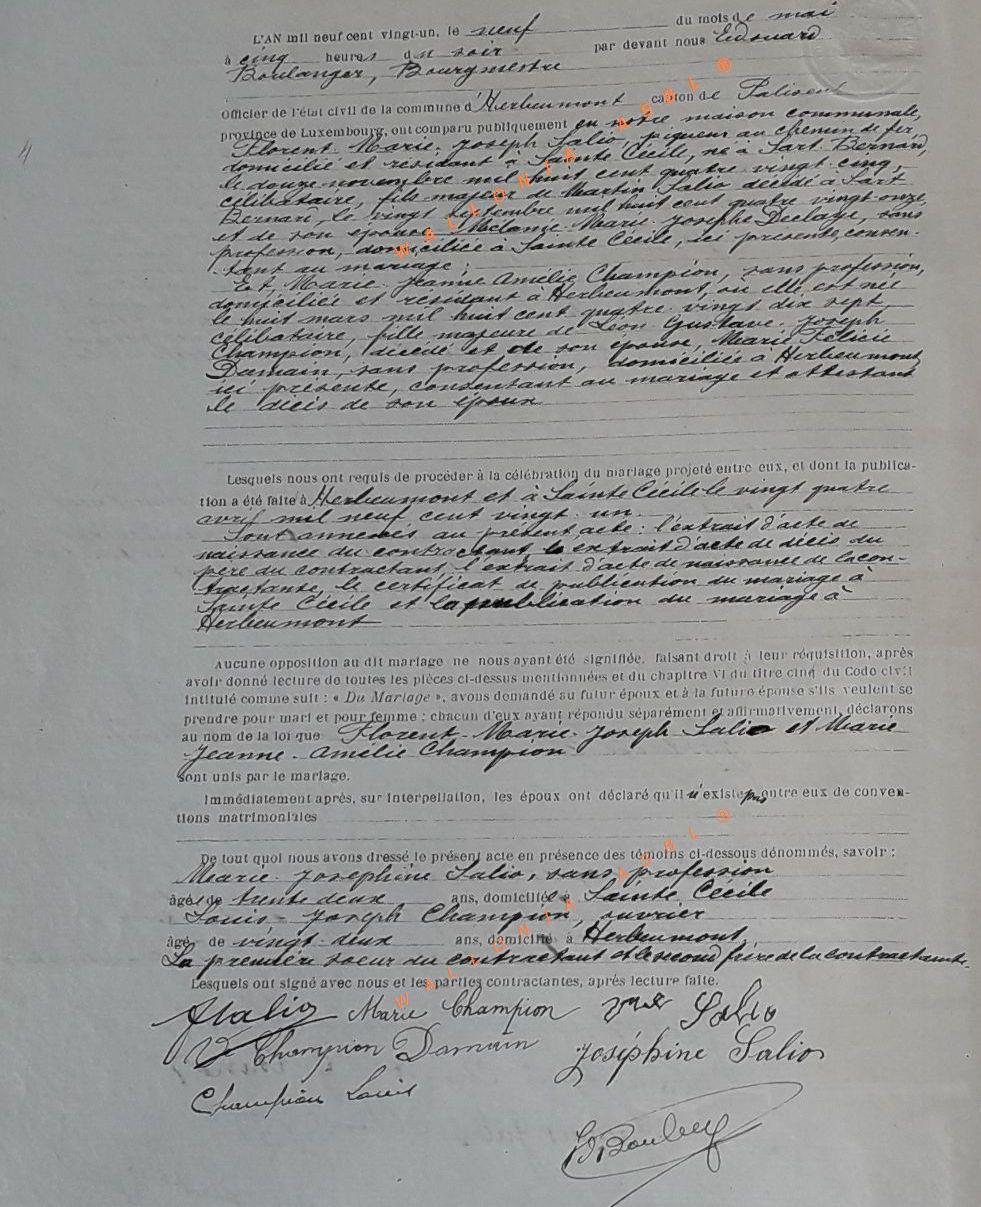 L'AN mil neuf cent vingt-un, le neuf du mois de mai
à cinq heures du soir par devant nous Edouard
Boulanger, Bourgmestre
Officier de l'état civil de la commune d'Herbeumont canton de Paliseul
province de Luxembourg, ont comparu publiquement en notre maison communale,
Florent-Marie-Joseph Salio, piqueur au chemin de fer,
domicilié et résidant à Sainte Cécile, né à Sart Bernard,
le douze novembre mil huit cent quatre vingt cinq,
célibataire, fils majeur de Martin Salio décédé à Sart
Bernard, le vingt septembre mil huit cent quatre vingt onze,
et de son épouse Mélanie-Marie-Josephe Declaye, sans
profession, domiciliée à Sainte Cécile, ici présente, consen-
tant au mariage;
Et Marie-Jeanne Amélie Champion, sans profession,
domiciliée et résidant à Herbeumont, où elle est née
le huit mars mil huit cent quatre vingt dix sept,
célibataire, fille majeure de Léon Gustave-Joseph
Champion, décédé et de son épouse, Marie Félicie
Damain, sans profession, domiciliée à Herbeumont,
ici présente, consentant au mariage et attestant
le décès de son époux
4
Lesquels nous ont requis de procéder à la célébration du mariage projeté entre eux, et dont la publica-
tion a été faite à Herbeumont et à Sainte Cécile le vingt quatre
avril mil neuf cent vingt-un.
Sont annexés au présent acte: l'extrait d'acte de
naissance du contractant, le extrait d'acte de décès du
père du contractant, l'extrait d'acte de naissance de la con-
tractante, le certificat de publication du mariage à
Sainte Cécile et la publication du mariage à
Herbeumont
Aucune opposition au dit mariage ne nous ayant été signifiée, faisant droit à leur réquisition, après
avoir donné lecture de toutes les pièces ci-dessus mentionnées et du chapitre VI du titre cinq du Code civil
intitulé comme suit : « Du Mariage », avons demandé au futur époux et à la future épouse s'ils veulent se
prendre pour mari et pour femme ; chacun d'eux ayant répondu séparément et affirmativement, déclarons
au nom de la loi que Florent-Marie-Joseph Salio et Marie
Jeanne-Amélie Champion
sont unis par le mariage.
Immédiatement après, sur interpellation, les époux ont déclaré qu'il n'existe pas entre eux de conven-
tions matrimoniales
De tout quoi nous avons dressé le présent acte en présence des témoins ci-dessous dénommés, savoir :
Marie-Joséphine Salio, sans profession
âgée de trente deux ans, domiciliée à Sainte Cécile
Louis-Joseph Champion, ouvrier
âgé de vingt-deux ans, domicilié à Herbeumont,
La première soeur du contractant et le second frère de la contractante.
Lesquels ont signé avec nous et les parties contractantes, après lecture faite.
FSalio Marie Champion Vve Salio
Ve Champion Damain Joséphine Salio
Champion Louis
WALLONIA ASBL ®
WALLONIA ASBL ®